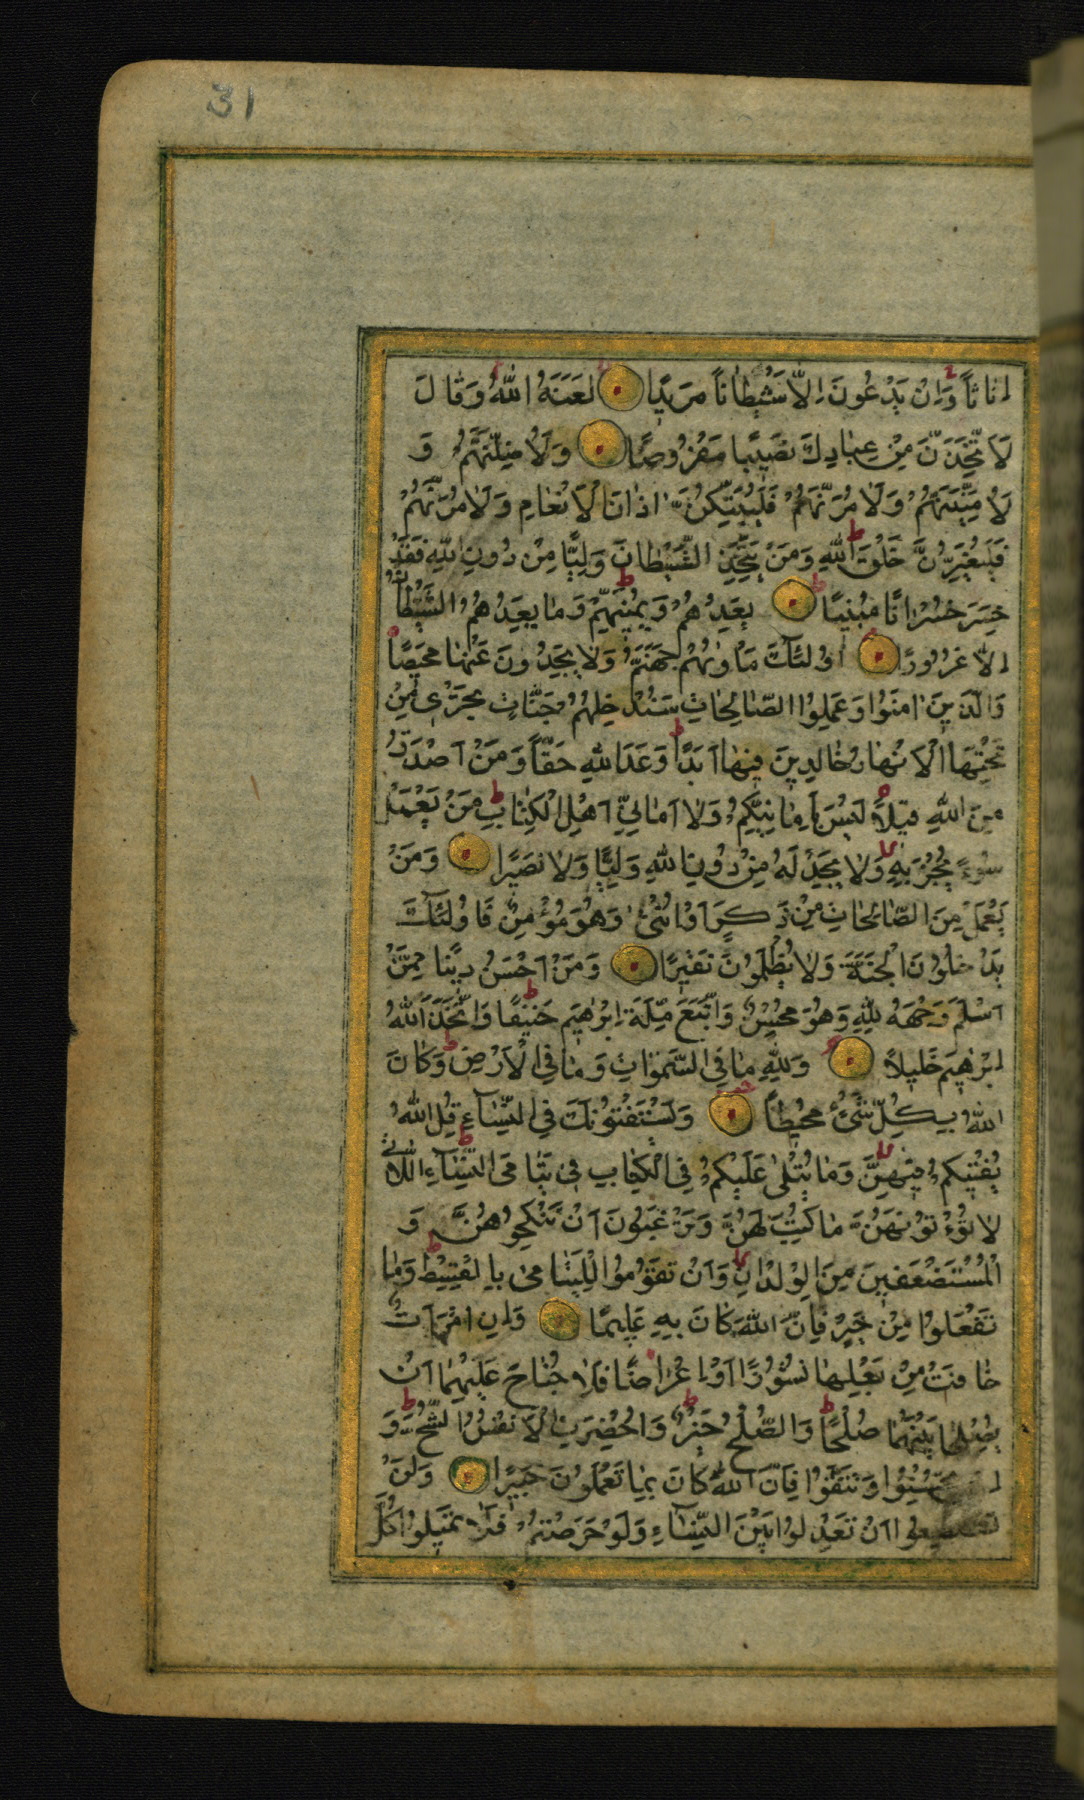 31
اِنَاثًا وَاِنْ يَدْعُونَ اِلَّا شَيْطَانًا مَرِيدًا لَعَنَهُ اللّٰهُ وَقَالَ
لَاَتَّخِذَنَّ مِنْ عِبَادِكَ نَصِيبًا مَفْرُوضًا وَلَاُضِلَّنَّهُمْ وَ
لَاُمَنِّيَنَّهُمْ وَلَاٰمُرَنَّهُمْ فَلَيُبَتِّكُنَّ اٰذَانَ الْاَنْعَامِ وَلَاٰمُرَنَّهُمْ
فَلَيُغَيِّرُنَّ خَلْقَ اللّٰهِ وَمَنْ يَتَّخِذِ الشَّيْطَانَ وَلِيًّا مِنْ دُونِ اللّٰهِ فَقَدْ
خَسِرَ خُسْرَانًا مُبِينًا يَعِدُهُمْ وَيُمَنِّيهِمْ وَمَا يَعِدُهُمُ الشَّيْطَانُ
اِلَّا غُرُورًا اُولٰئِكَ مَاْوٰيهُمْ جَهَنَّمُ وَلَا يَجِدُونَ عَنْهَا مَحِيصًا
وَالَّذِينَ اٰمَنُوا وَعَمِلُوا الصَّالِحَاتِ سَنُدْخِلُهُمْ جَنَّاتٍ تَجْرِي مِنْ
تَحْتِهَا الْاَنْهَارُ خَالِدِينَ فِيهَا اَبَدًا وَعْدَ اللّٰهِ حَقًّا وَمَنْ اَصْدَقُ
مِنَ اللّٰهِ قِيلًا لَيْسَ بِاَمَانِيِّكُمْ وَلَا اَمَانِيِّ اَهْلِ الْكِتَابِ مَنْ يَعْمَلْ
سُوءًا يُجْزَ بِهِ وَلَا يَجِدْ لَهُ مِنْ دُونِ اللّٰهِ وَلِيًّا وَلَا نَصِيرًا وَمَنْ
يَعْمَلْ مِنَ الصَّالِحَاتِ مِنْ ذَكَرٍ اَوْ اُنْثٰى وَهُوَ مُؤْمِنٌ فَاُولٰئِكَ
يَدْخُلُونَ الْجَنَّةَ وَلَا يُظْلَمُونَ نَقِيرًا وَمَنْ اَحْسَنُ دِينًا مِمَّنْ
اَسْلَمَ وَجْهَهُ لِلّٰهِ وَهُوَ مُحْسِنٌ وَاتَّبَعَ مِلَّةَ اِبْرٰهِيمَ حَنِيفًا وَاتَّخَذَ اللّٰهُ
اِبْرٰهِيمَ خَلِيلًا وَلِلّٰهِ مَا فِي السَّمٰوَاتِ وَمَا فِي الْاَرْضِ وَكَانَ
اللّٰهُ بِكُلِّ شَيْءٍ مُحِيطًا وَيَسْتَفْتُونَكَ فِي النِّسَاءِ قُلِ اللّٰهُ
يُفْتِيكُمْ فِيهِنَّ وَمَا يُتْلٰى عَلَيْكُمْ فِي الْكِتَابِ فِي يَتَامَى النِّسَاءِ اللَّاتِي
لَا تُؤْتُونَهُنَّ مَا كُتِبَ لَهُنَّ وَتَرْغَبُونَ اَنْ تَنْكِحُوهُنَّ وَ
الْمُسْتَضْعَفِينَ مِنَ الْوِلْدَانِ وَاَنْ تَقُومُوا لِلْيَتَامٰى بِالْقِسْطِ وَمَا
تَفْعَلُوا مِنْ خَيْرٍ فَاِنَّ اللّٰهَ كَانَ بِهِ عَلِيمًا وَاِنِ امْرَاَتٌ
خَافَتْ مِنْ بَعْلِهَا نُشُوزًا اَوْ اِعْرَاضًا فَلَا جُنَاحَ عَلَيْهِمَا اَنْ
يُصْلِحَا بَيْنَهُمَا صُلْحًا وَالصُّلْحُ خَيْرٌ وَاُحْضِرَتِ الْاَنْفُسُ الشُّحَّ وَ
اِنْ تُحْسِنُوا وَتَتَّقُوا فَاِنَّ اللّٰهَ كَانَ بِمَا تَعْمَلُونَ خَبِيرًا وَلَنْ
تَسْتَطِيعُوا اَنْ تَعْدِلُوا بَيْنَ النِّسَاءِ وَلَوْ حَرَصْتُمْ فَلَا تَمِيلُوا كُلَّ